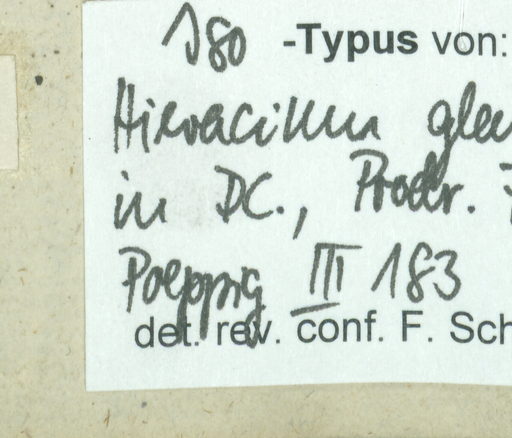 Iso -Typus von:
Hieracium glau
in DC., Prodr. 7
Poeppig III 183
det. rev. conf. F. Sch